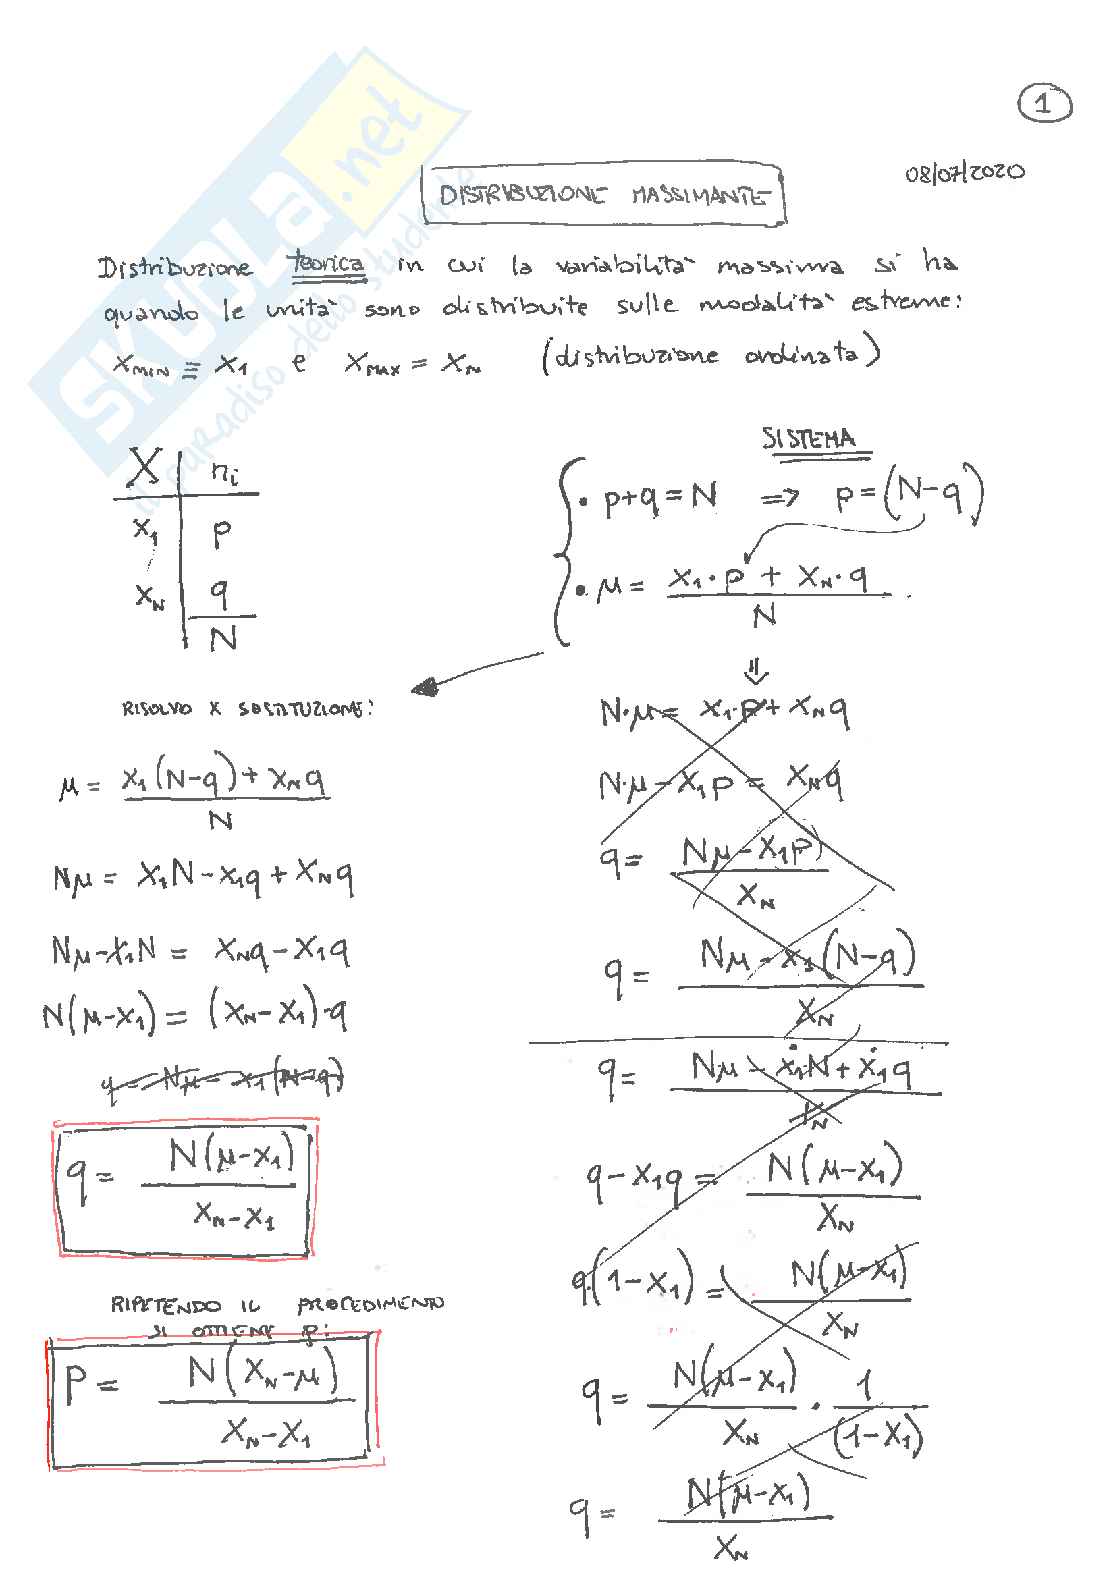 1
08/07/2020
DISTRIBUZIONE MASSIMANTE
Distribuzione teorica in cui la variabilità massima si ha
quando le unità sono distribuite sulle modalità estreme:
X_MIN ≡ X_1 e X_MAX = X_N (distribuzione ordinata)
X | n_i
x_1 | p
x_N | q
N
SISTEMA
• p+q = N ⇒ p = (N-q)
• μ = (x_1·p + x_N·q) / N
⇓
RISOLVO X SOSTITUZIONE:
μ = (x_1(N-q) + x_N q) / N
Nμ = x_1N - x_1q + x_Nq
Nμ - x_1N = x_Nq - x_1q
N(μ-x_1) = (x_N-x_1)·q
q = Nμ - x_1(N-q)
q = N(μ-x_1) / (x_N-x_1)
RIPETENDO IL PROCEDIMENTO
SI OTTIENE P:
P = N(x_N-μ) / (x_N-x_1)
N·μ = x_1·p + x_N q
N·μ - x_1p = x_N q
q = (Nμ - x_1p) / x_N
q = (Nμ - x_1(N-q)) / x_N
q = (Nμ - x_1·N + x_1q) / x_N
q - x_1q = N(μ-x_1) / x_N
q·(1-x_1) = N(μ-x_1) / x_N
q = N(μ-x_1) / x_N · 1 / (1-x_1)
q = N(μ-x_1) / x_N
SKUOLA.net
il paradiso dello studente